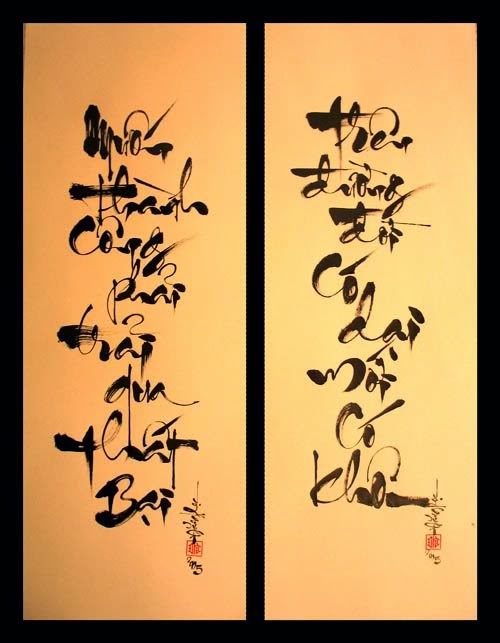 Muốn
thành
Công
phải
trải
qua
thất
Bại
trên
đường
đời
Có
dại
mới
Có
khôn